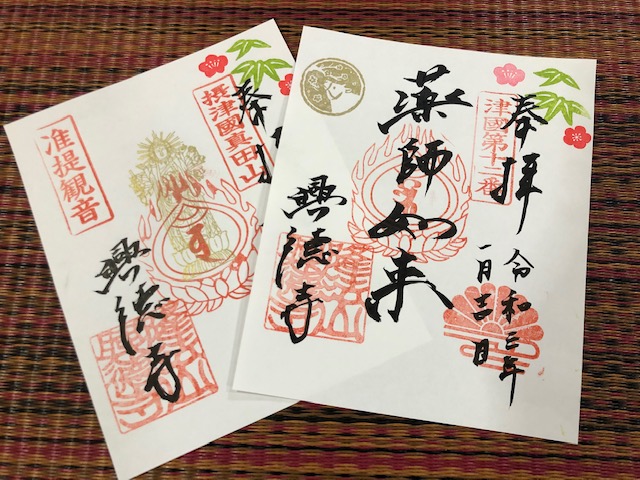 奉拝
津國第十二番
令和三年
一月吉日
薬師如来
興徳寺
奉
摂津國真田山
准提観音
興徳寺